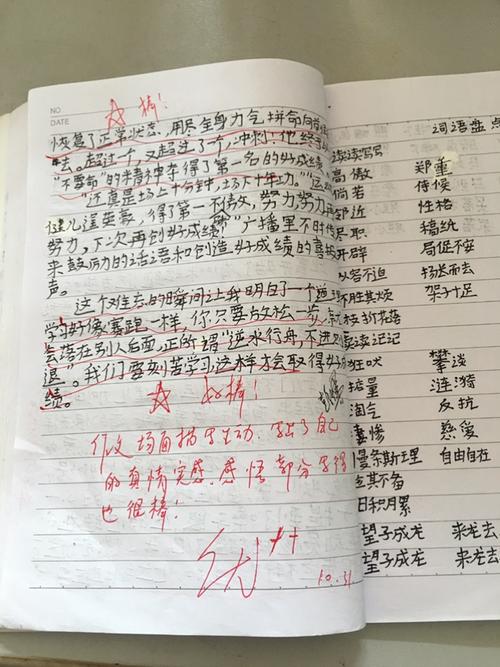 NO.
DATE
☆ 棒！
恢复了正常状态，用尽全身力气，拼命向前
去。超过一个，又超过了一个，冲刺！他终于
"不要命"的精神夺得了第一名的好成绩。
"还真是场上十分钟，场下十年工。"
健儿逞英豪，得了第一别骄傲，努力努力再
努力，下次再创好成绩。"广播里不时传
来鼓励的话语和创造好成绩的喜报
声。
这个难忘的瞬间让我明白了一个道理
学习好像赛跑一样，你只要放松一步，
会落在别人后面，正所谓"逆水行舟，不进则
退"。我们要刻苦学习，这样才会取得好成
绩。
☆ 好棒！
作文场面描写生动，写出了自己
的真情实感。感悟部分写得
也很棒！
优++
10.31
词语盘点
读读写写
高傲 郑重
倘若 侍候
邻近 性格
尽职 稿纸
开辟 局促不安
从容不迫 扬长而去
不胜其烦 架子十足
枝折花落
读读记记
狂吠 攀谈
掂量 涟漪
淘气 反抗
凄惨 慈爱
慢条斯理 自由自在
乘其不备
日积月累
望子成龙 来龙去
望子成龙 来龙去